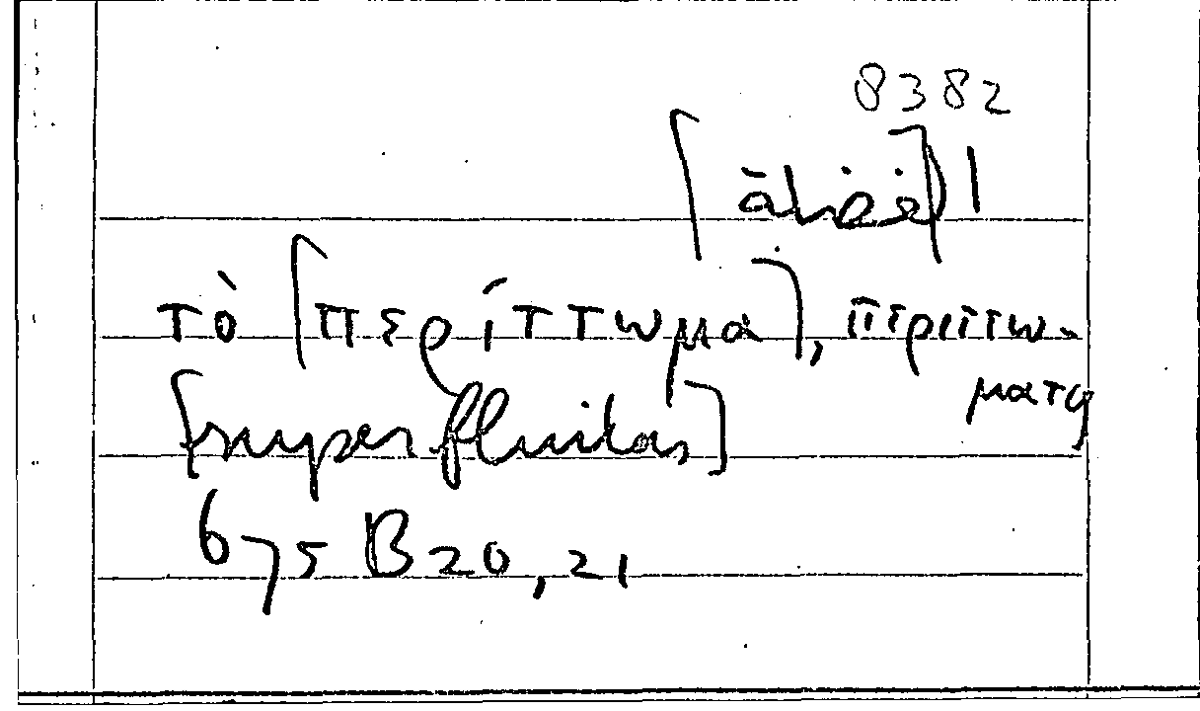 8382
1
τὸ [περίττωμα], περιττώ-
ματα
[superfluitas]
675 B 20, 21